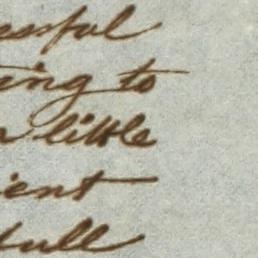 essful
ing to
little
ient
full